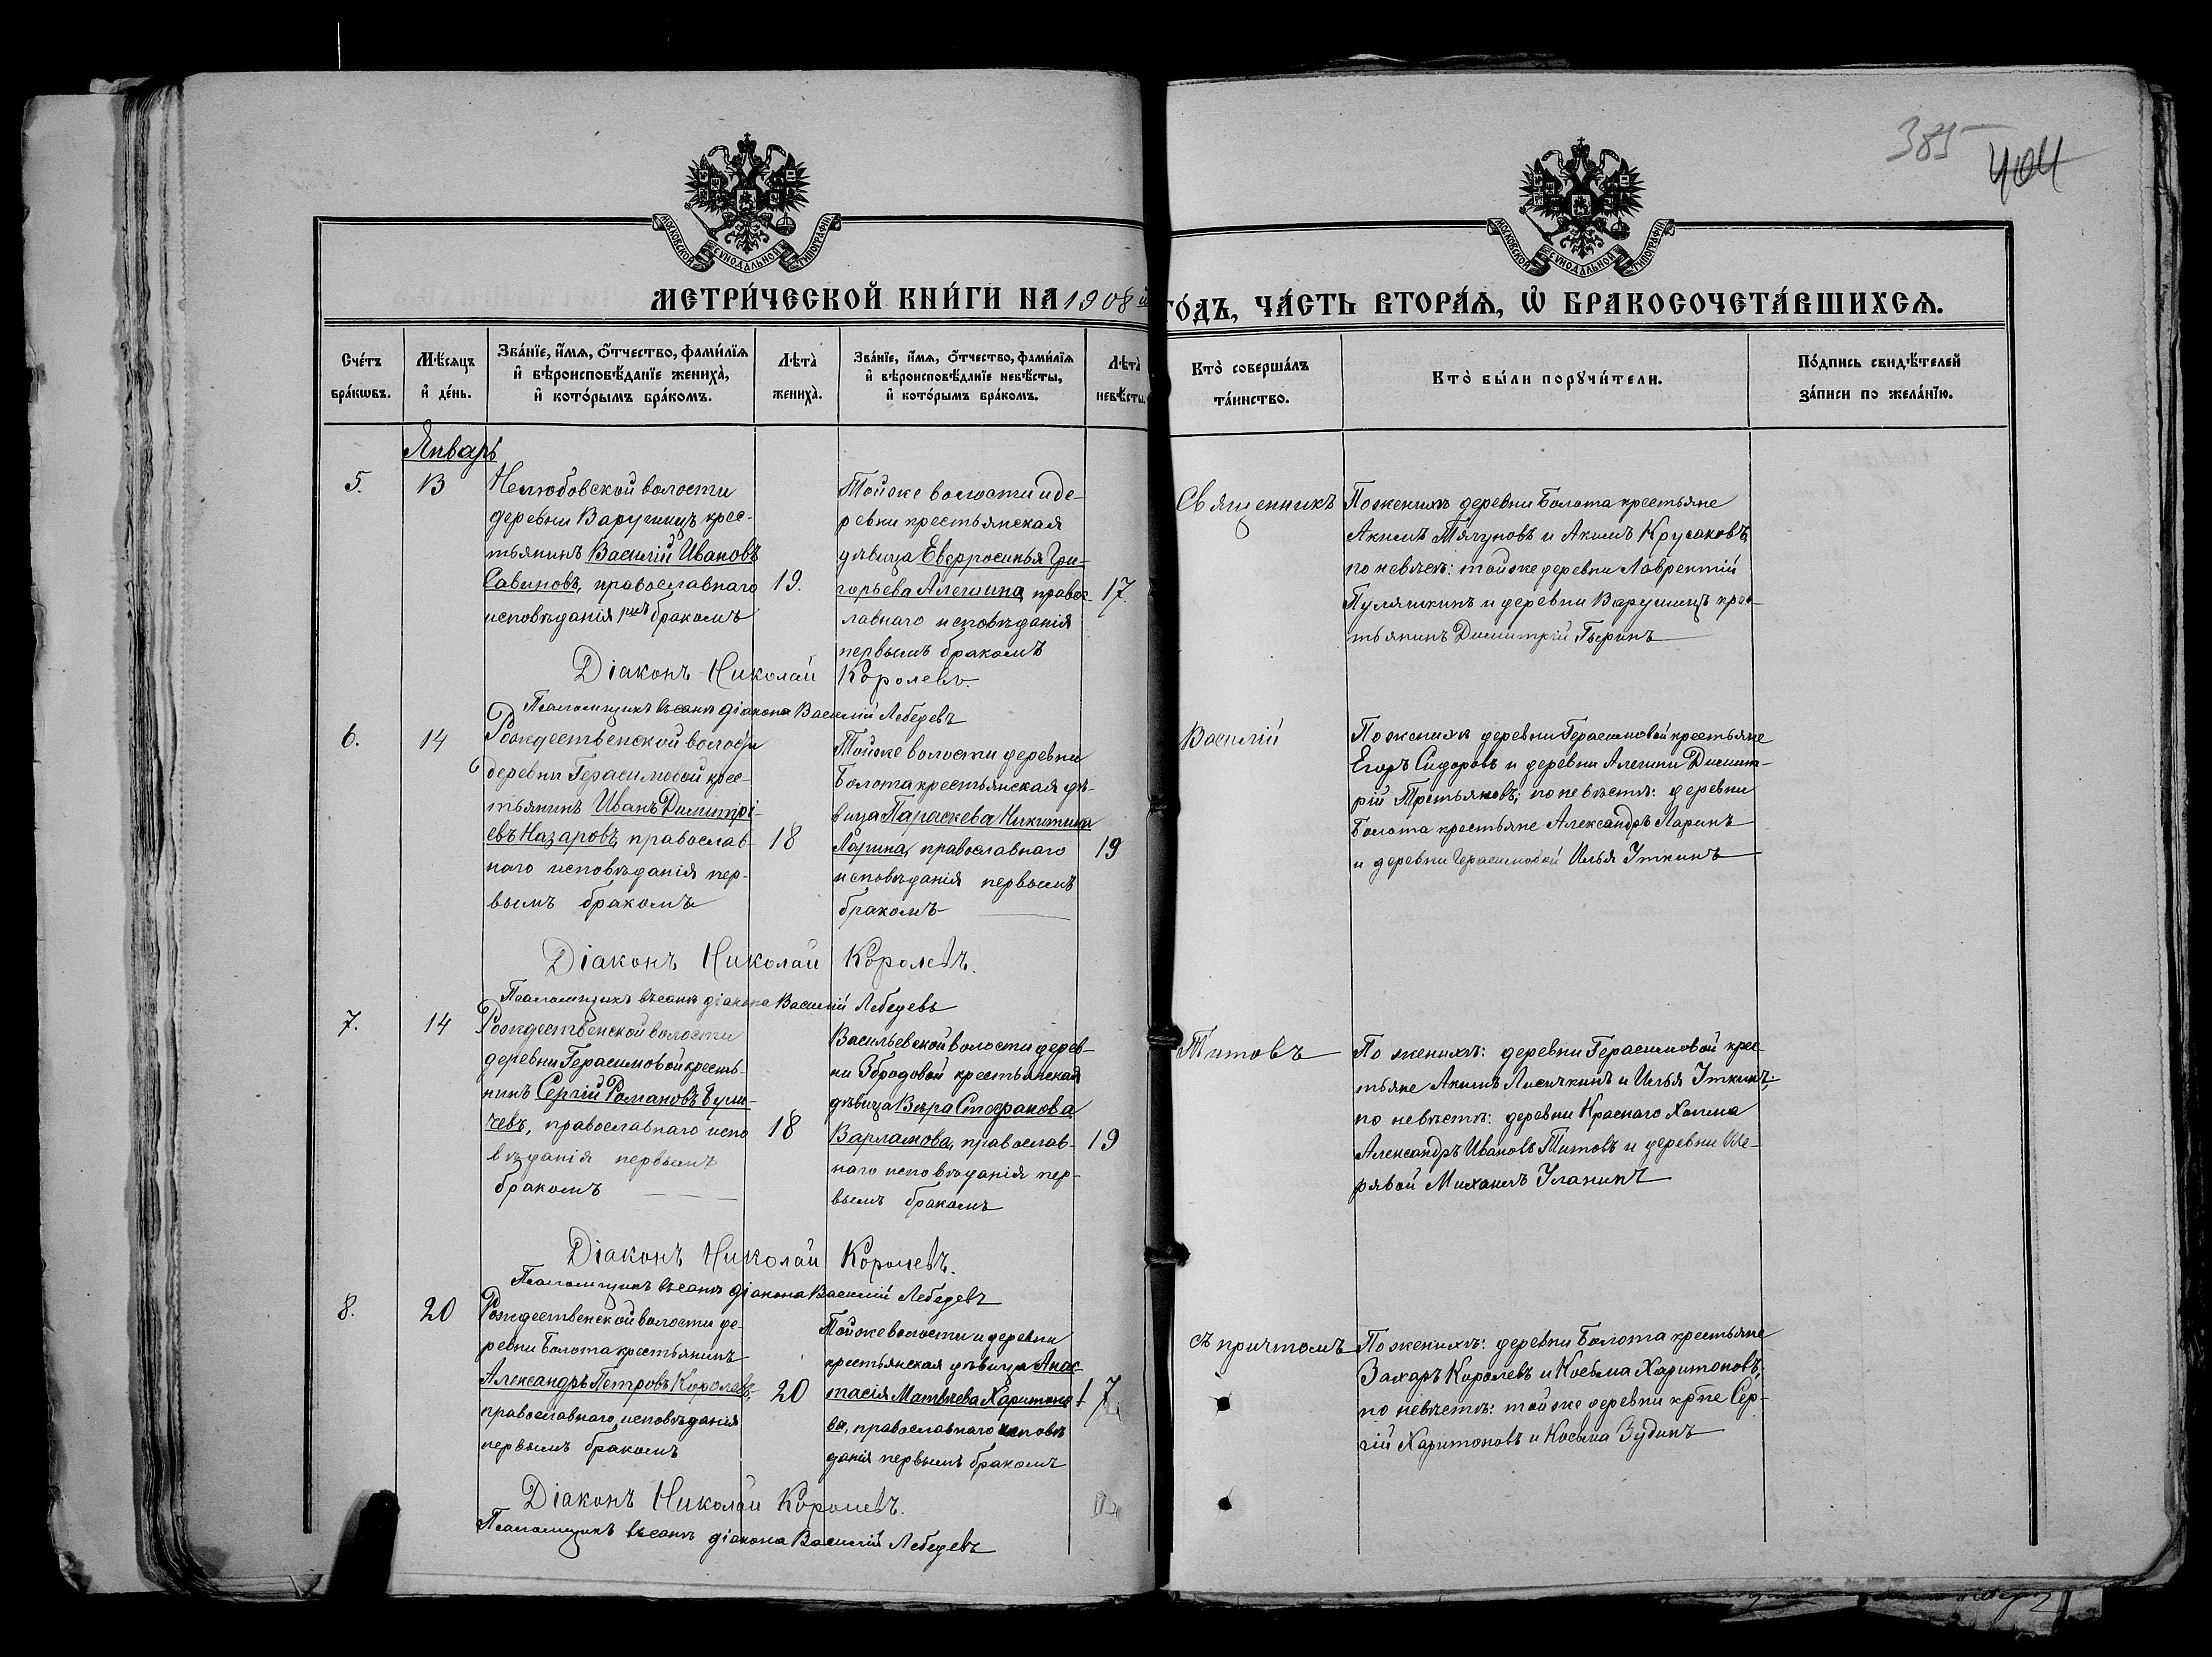 385
404
МОСКОВСКОЙ СѴНОДАЛЬНОЙ ТИПОГРАФІИ
МОСКОВСКОЙ СѴНОДАЛЬНОЙ ТИПОГРАФІИ
МЕТРИ́ЧЕСКОЙ КНИ́ГИ НА 1908й ГО́ДЪ, ЧА́СТЬ ВТОРА́Ѧ, Ѡ҆ БРАКОСОЧЕТА́ВШИХСѦ.
Сче́тъ бра́кѡвъ.
Мѣ́сѧцъ и҆ де́нь.
Зва́нїе, и҆́мѧ, ѻ҆́тчество, фами́лїѧ и҆ вѣроисповѣ́данїе жениха̀, и҆ кото́рымъ бра́комъ.
Лѣта̀ жениха̀.
Зва́нїе, и҆́мѧ, ѻ҆́тчество, фами́лїѧ и҆ вѣроисповѣ́данїе невѣ́сты, и҆ кото́рымъ бра́комъ.
Лѣта̀ невѣ́сты.
Кто̀ соверша́лъ та́инство.
Кто̀ бы́ли порꙋчи́тели.
По́дпись свидѣ́телей за́писи по жела́нїю.
Январь
5.
13
Нелюбовской волости
деревни Варушицъ крес-
тьянинъ Василій Ивановъ
Савиновъ, православнаго
исповѣданія 1ымъ бракомъ
19.
Тойже волости и де-
ревни крестьянская
дѣвица Евфросинья Гри-
горьева Алешина, правос-
лавнаго исповѣданія
первымъ бракомъ
17.
Священникъ
По женихѣ деревни Болота крестьяне
Акимъ Тягуновъ и Акимъ Крусаковъ,
по невѣстѣ: тойже деревни Лаврентій
Пуляшкинъ и деревни Варушицъ крес-
тьянинъ Димитрій Гыринъ
Діаконъ Николай Королевъ.
Псаломщикъ въ санѣ діакона Василій Лебедевъ
6.
14
Рождественской волости
деревни Герасимовой крес-
тьянинъ Иванъ Димитрі-
евъ Назаровъ, православ-
наго исповѣданія пер-
вымъ бракомъ
18
Тойже волости деревни
Болота крестьянская дѣ-
вица Параскева Никитина
Ларина, православнаго
исповѣданія первымъ
бракомъ
19
Василій
По женихѣ деревни Герасимовой крестьяне
Егоръ Сидоровъ и деревни Алешни Димит-
рій Третьяковъ; по невѣстѣ: деревни
Болота крестьяне Александръ Ларинъ
и деревни Герасимовой Илья Уткинъ
Діаконъ Николай Королевъ.
Псаломщикъ въ санѣ діакона Василій Лебедевъ
7.
14
Рождественской волости
деревни Герасимовой кресть-
нинъ Сергій Романовъ
чевъ, православнаго испо
вѣданія первымъ
бракомъ
18
Васильевской волости дерев-
ни Збродовой крестьянская
дѣвица Вѣра Стефанова
Варламова, православ-
наго исповѣданія пер-
вымъ бракомъ
19
Титовъ
По женихѣ: деревни Герасимовой крес-
тьяне Акимъ Лисичкинъ и Илья Уткинъ,
по невѣстѣ: деревни Краснаго Холма
Александръ Ивановъ Титовъ и деревни Ше-
рявой Михаилъ Уланинъ
Діаконъ Николай Королевъ.
Псаломщикъ въ санѣ діакона Василій Лебедевъ
8.
20
Рождественской волости де-
ревни Болота крестьянинъ
Александръ Петровъ Королевъ,
православнаго исповѣданія
первымъ бракомъ
20
Тойже волости и деревни
крестьянская дѣвица Анас-
тасія Матвѣева Харитоно-
ва, православнаго исповѣ
данія первымъ бракомъ
17
съ причтомъ
По женихѣ: деревни Болота крестьяне
Захаръ Королевъ и Косьма Харитоновъ;
по невѣстѣ: тойже деревни крne Сер-
гій Харитоновъ и Косьма Зудинъ
Діаконъ Николай Королевъ.
Псаломщикъ въ санѣ діакона Василій Лебедевъ